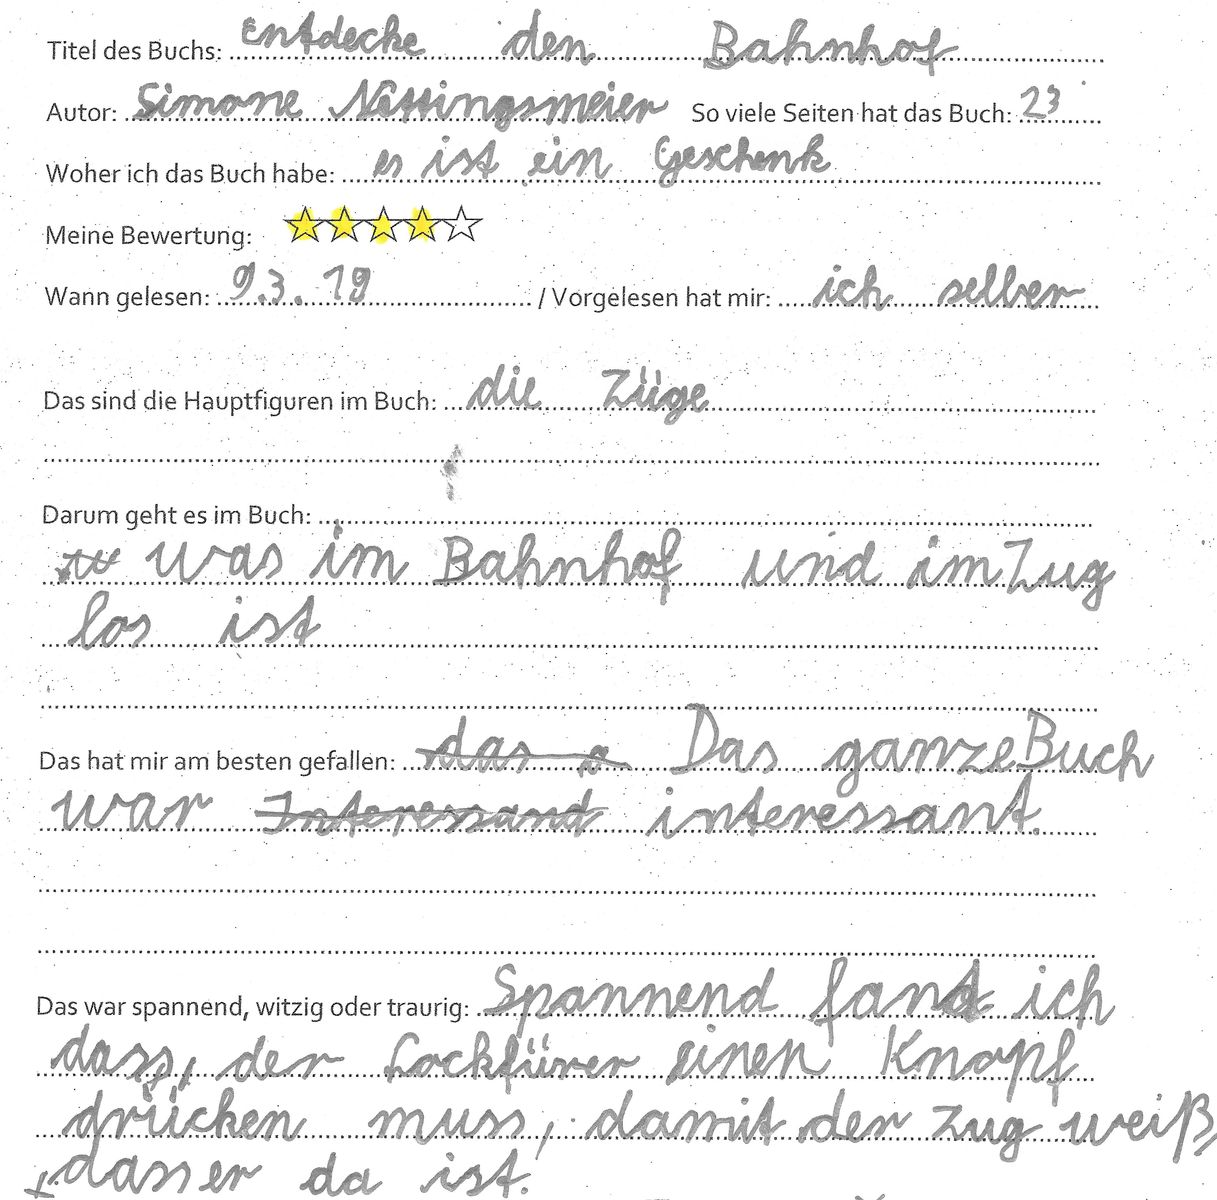 Titel des Buchs: Entdecke den Bahnhof
Autor: Simone Nettingsmeier So viele Seiten hat das Buch: 23
Woher ich das Buch habe: es ist ein Geschenk
Meine Bewertung:
Wann gelesen: 9.3.19 / Vorgelesen hat mir: ich selber
Das sind die Hauptfiguren im Buch: die Züge
Darum geht es im Buch:
was im Bahnhof und im Zug
los ist
Das hat mir am besten gefallen: das Das ganze Buch
war Interessand interessant.
Das war spannend, witzig oder traurig: Spannend fand ich
dass, der Lockfürer einen Knopf
drücken muss, damit der Zug weiß,
dass er da ist.